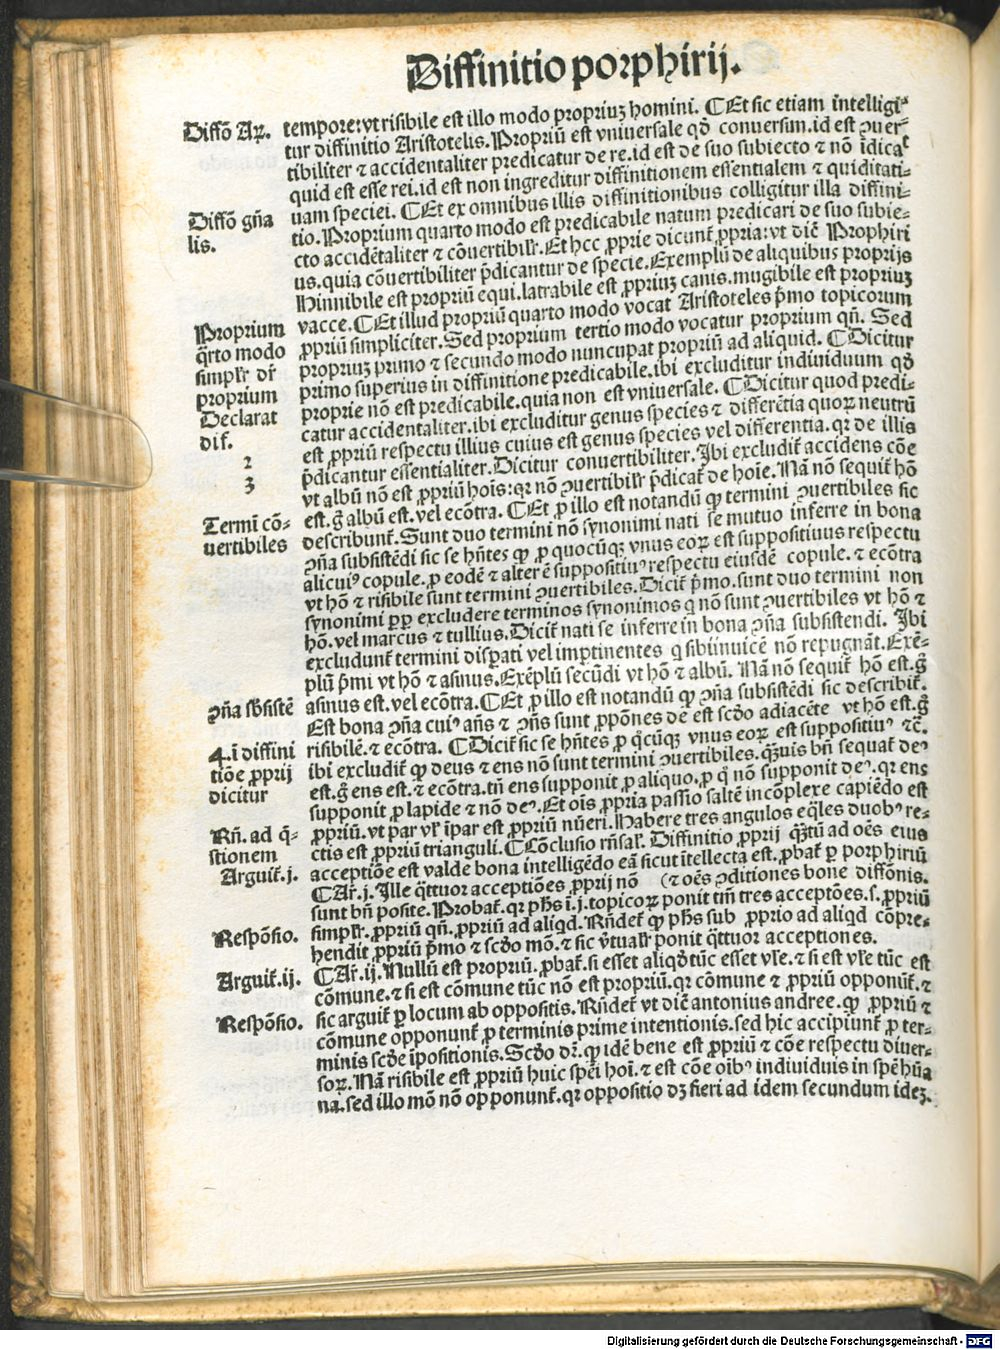 Diffinitio porphirij.
Diffõ Aꝝ.
tempore: vt risibile est illo modo propriuꝫ homini. ¶ Et sic etiam intelligi⸗
tur diffinitio Aristotelis. Propriũ est vniuersale qđ conuersim. id est ꝯuer⸗
tibiliter ⁊ accidentaliter predicatur de re. id est de suo subiecto ⁊ nõ ĩdicat
quid est esse rei. id est non ingreditur diffinitionem essentialem ⁊ quiditati⸗
Diffõ gña
lis.
uam speciei. ¶ Et ex omnibus illis diffinitionibus colligitur illa diffini⸗
tio. Proprium quarto modo est predicabile natum predicari de suo subie⸗
cto accidẽtaliter ⁊ cõuertibilr̃. Et hec ꝓprie dicunt̃ ꝓpria: vt dic̃ Prophiri
us. quia cõuertibiliter p̃dicantur de specie. Exemplũ de aliquibus proprijs
Hinnibile est propriũ equi. latrabile est ꝓpriuꝫ canis. mugibile est propriuꝫ
Proprium
q̃rto modo
simplr̃ dr̃
proprium
vacce. ¶ Et illud propriũ quarto modo vocat Aristoteles p̃mo topicorum
ꝓpriũ simpliciter. Sed proprium tertio modo vocatur proprium qñ. Sed
propriuꝫ primo ⁊ secundo modo nuncupat propriũ ad aliquid. ¶ Dicitur
primo superius in diffinitione predicabile. ibi excluditur indiuiduum qđ
Declarat
dif.
2
3
proprie nõ est predicabile. quia non est vniuersale. ¶ Dicitur quod predi⸗
catur accidentaliter. ibi excluditur genus species ⁊ differẽtia quoꝝ neutrũ
est ꝓpriũ respectu illius cuius est genus species vel differentia. qr de illis
p̃dicantur essentialiter. Dicitur conuertibiliter. Ibi excludit̃ accidens cõe
vt albũ nõ est ꝓpriũ hoĩs: qr nõ ꝯuertibilr̃ p̃dicat̃ de hoĩe. Nã nõ sequit̃ hõ
Termĩ cõ⸗
uertibiles
est. g̃ albũ est. vel ecõtra. ¶ Et ꝓ illo est notandũ ꝙ termini ꝯuertibiles sic
describunt̃. Sunt duo termini nõ synonimi nati se mutuo inferre in bona
ꝯña subsistẽdi sic se hñtes ꝙ ꝓ quocũqꝫ vnus eoꝝ est suppositiuus respectu
alicui⁹ copule. ꝓ eodẽ ⁊ alter ẽ suppositiu⁹ respectu eiusdẽ copule. ⁊ ecõtra
vt hõ ⁊ risibile sunt termini ꝯuertibiles. Dicit̃ p̃mo. sunt duo termini non
synonimi ꝓꝑ excludere terminos synonimos q̃ nõ sunt ꝯuertibiles vt hõ ⁊
hõ. vel marcus ⁊ tullius. Dicit̃ nati se inferre in bona ꝯña subsistendi. Ibi
excludunt̃ termini disꝑati vel imꝑtinentes q̃ sibijnuicẽ nõ repugnãt. Exẽ⸗
plũ p̃mi vt hõ ⁊ asinus. Exẽplũ secũdi vt hõ ⁊ albũ. Nã nõ sequit̃ hõ est. g̃
ꝯña sb̃sistẽ
asinus est. vel ecõtra. ¶ Et ꝓ illo est notandũ ꝙ ꝯña subsistẽdi sic describit̃.
Est bona ꝯña cui⁹ añs ⁊ ꝯñs sunt ꝓpõnes de est scđo adiacẽte vt hõ est. g̃
4. ĩ diffini
tiõe ꝓprij
dicitur
risibilẽ. ⁊ ecõtra. ¶ Dicit̃ sic se hñtes ꝓ q̃cũqꝫ vnus eoꝝ est suppositiu⁹ ⁊c̃.
ibi excludit̃ ꝙ deus ⁊ ens nõ sunt termini ꝯuertibiles. q̃uis bñ sequat̃ de⁹
est. g̃ ens est. ⁊ ecõtra. tñ ens supponit ꝓ aliquo. ꝓ q̃ nõ supponit de⁹. qr ens
supponit ꝓ lapide ⁊ nõ de⁹. Et oĩs ꝓpria passio saltẽ incõplexe capiẽdo est
Rñ. ad q̃⸗
stionem
ꝓpriũ. vt par vl̃ ĩpar est ꝓpriũ nũeri. Habere tres angulos eq̃les duob⁹ re⸗
ctis est ꝓpriũ trianguli. ¶ Cõclusio rñsal̃. Diffinitio ꝓprij q̃tũ ad oẽs eius
Arguit̃. j.
acceptiõe est valde bona intelligẽdo eã sicut ĩtellecta est. ꝓbat̃ ꝑ porphiriũ
¶ Ar̃. j. Ille q̃ttuor acceptiões ꝓprij nõ (⁊ oẽs ꝯditiones bone diffõnis.
sunt bñ posite. Probat̃. qr ph̃s ĩ. j. topicoꝝ ponit tm̃ tres acceptões. s. ꝓpriũ
Respõsio.
simplr̃. ꝓpriũ qñ. ꝓpriũ ad aliqd. Rñdet̃ ꝙ ph̃s sub ꝓprio ad aliqd cõpre⸗
hendit ꝓpriũ p̃mo ⁊ scđo mõ. ⁊ sic ṽtualr̃ ponit q̃ttuor acceptiones.
Arguit̃. ij.
¶ Ar̃. ij. Nullũ est propriũ. ꝓbat̃. si esset aliqđ tũc esset vl̃e. ⁊ si est vl̃e tũc est
cõmune. ⁊ si est cõmune tũc nõ est propriũ. qr cõmune ⁊ ꝓpriũ opponũt̃. ⁊
Respõsio.
sic arguit̃ ꝑ locum ab oppositis. Rñdet̃ vt dic̃ antonius andree. ꝙ ꝓpriũ ⁊
cõmune opponunt̃ ꝓ terminis prime intentionis. sed hic accipiunt̃ ꝓ ter⸗
minis scđe ĩpositionis. Scđo dr̃. ꝙ idẽ bene est ꝓpriũ ⁊ cõe respectu diuer⸗
soꝝ. Nã risibile est ꝓpriũ huic spẽi hoĩ. ⁊ est cõe oib⁹ indiuiduis in spẽ hũa
na. sed illo mõ nõ opponunt̃. qr oppositio dꝫ fieri ad idem secundum ideꝫ.
Digitalisierung gefördert durch die Deutsche Forschungsgemeinschaft - DFG